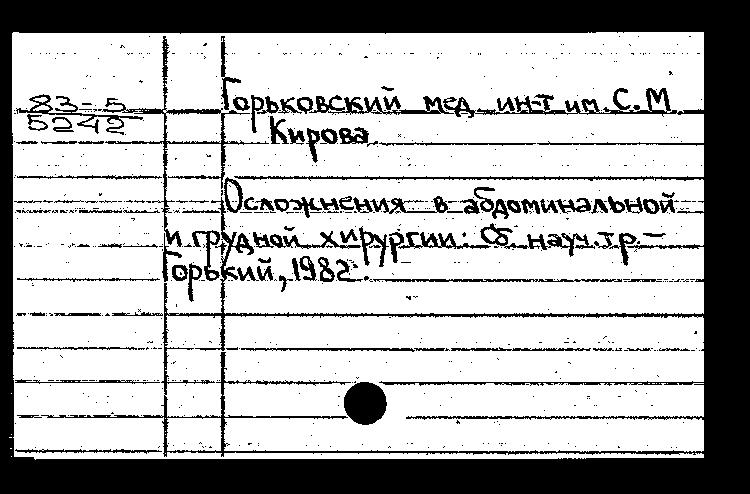 83-5
5242
Горьковский мед. ин-т им. С.М.
Кирова.
Осложнения в абдоминальной
и грудной хирургии: Сб. науч. тр. —
Горький, 1982.